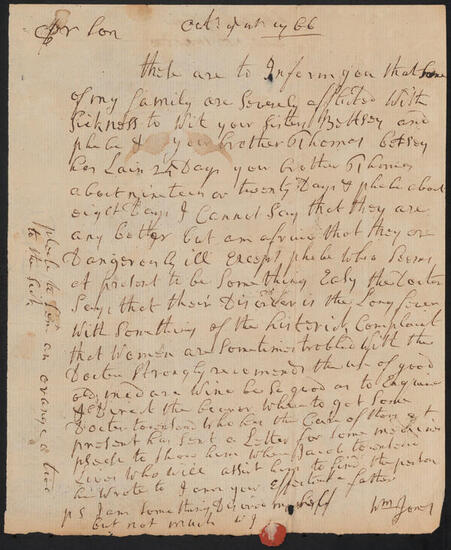 Dr Son
1766
these are to Inform you that Some
of my family are Severly afflicted With
Sickness to Wit your Sisters Bettsey and
phebe & your brother Thomas betsey
has Lain 24 Days your brother Thomas
about nineteen or twenty Days & phebe about
eight Days I Cannot Say that they are
any better but am afraid that they are
Dangerously ill Except phebe Who Seems
at present to be Something Easy the Doctor
Says that their Disorder is the Long fever
With Something of the histerick Complaint
that Women are Sometimes trobled With the
Doctor Strongly recomends the use of good
old wine be So good as to Enquire
& Direct the bearer Where to get Some
Doctor townsend Who has the Care of them at
present has Sent a Letter for Some medicines
please to Show him Where Jacob
Lives Who will assist him to find the person
he Wrote to I am your father
Wm Jones
ps I am Something myself
but not much WJ
please to Send an orange or two
to the Sick